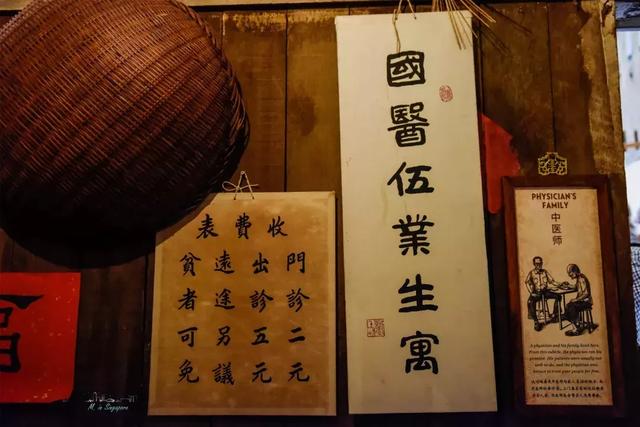 國醫伍業生寓
收費表
門診二元
出診五元
遠途另議
貧者可免
PHYSICIAN'S
FAMILY
中医师
A physician and his family lived here.
From this cubicle, the physician ran his
practice. His patients were usually not
well-to-do, and the physician was
known to treat poor people for free.
M. in Singapore